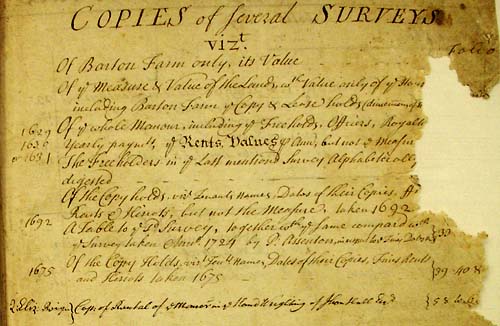 COPIES of several SURVEYS
vizt.
Folio
Of Barton Farm only, its Value
Of ye Measure & Value of the Lands, wth Value only of ye
including Barton Farm ye Copy & Lease holds
1629 Of ye whole Manour, including ye Freeholds, Officers, Royalt
1639 Yearly paymts, ye Rents, Values p Ann, but not ye Measur
or 1631 The Freeholders in ye Last mentiond Survey Alphabetically
digested
Of the Copy holds, viz Tenants Names, Dates of their Copies,
Rents & Heriots, but not the Measure, taken 1692
1692 A Table to ye sd Survey, together wth ye same compard wth
ye Survey taken Anno 1724 by P.
Of the Copy Holds, vizt Tents Names, Dates of their Copies, Fines Rents
39 40 &
1675 and Heriots taken 1675
Copy of Rental of ye Manor in ye Hand Wrighting of
53